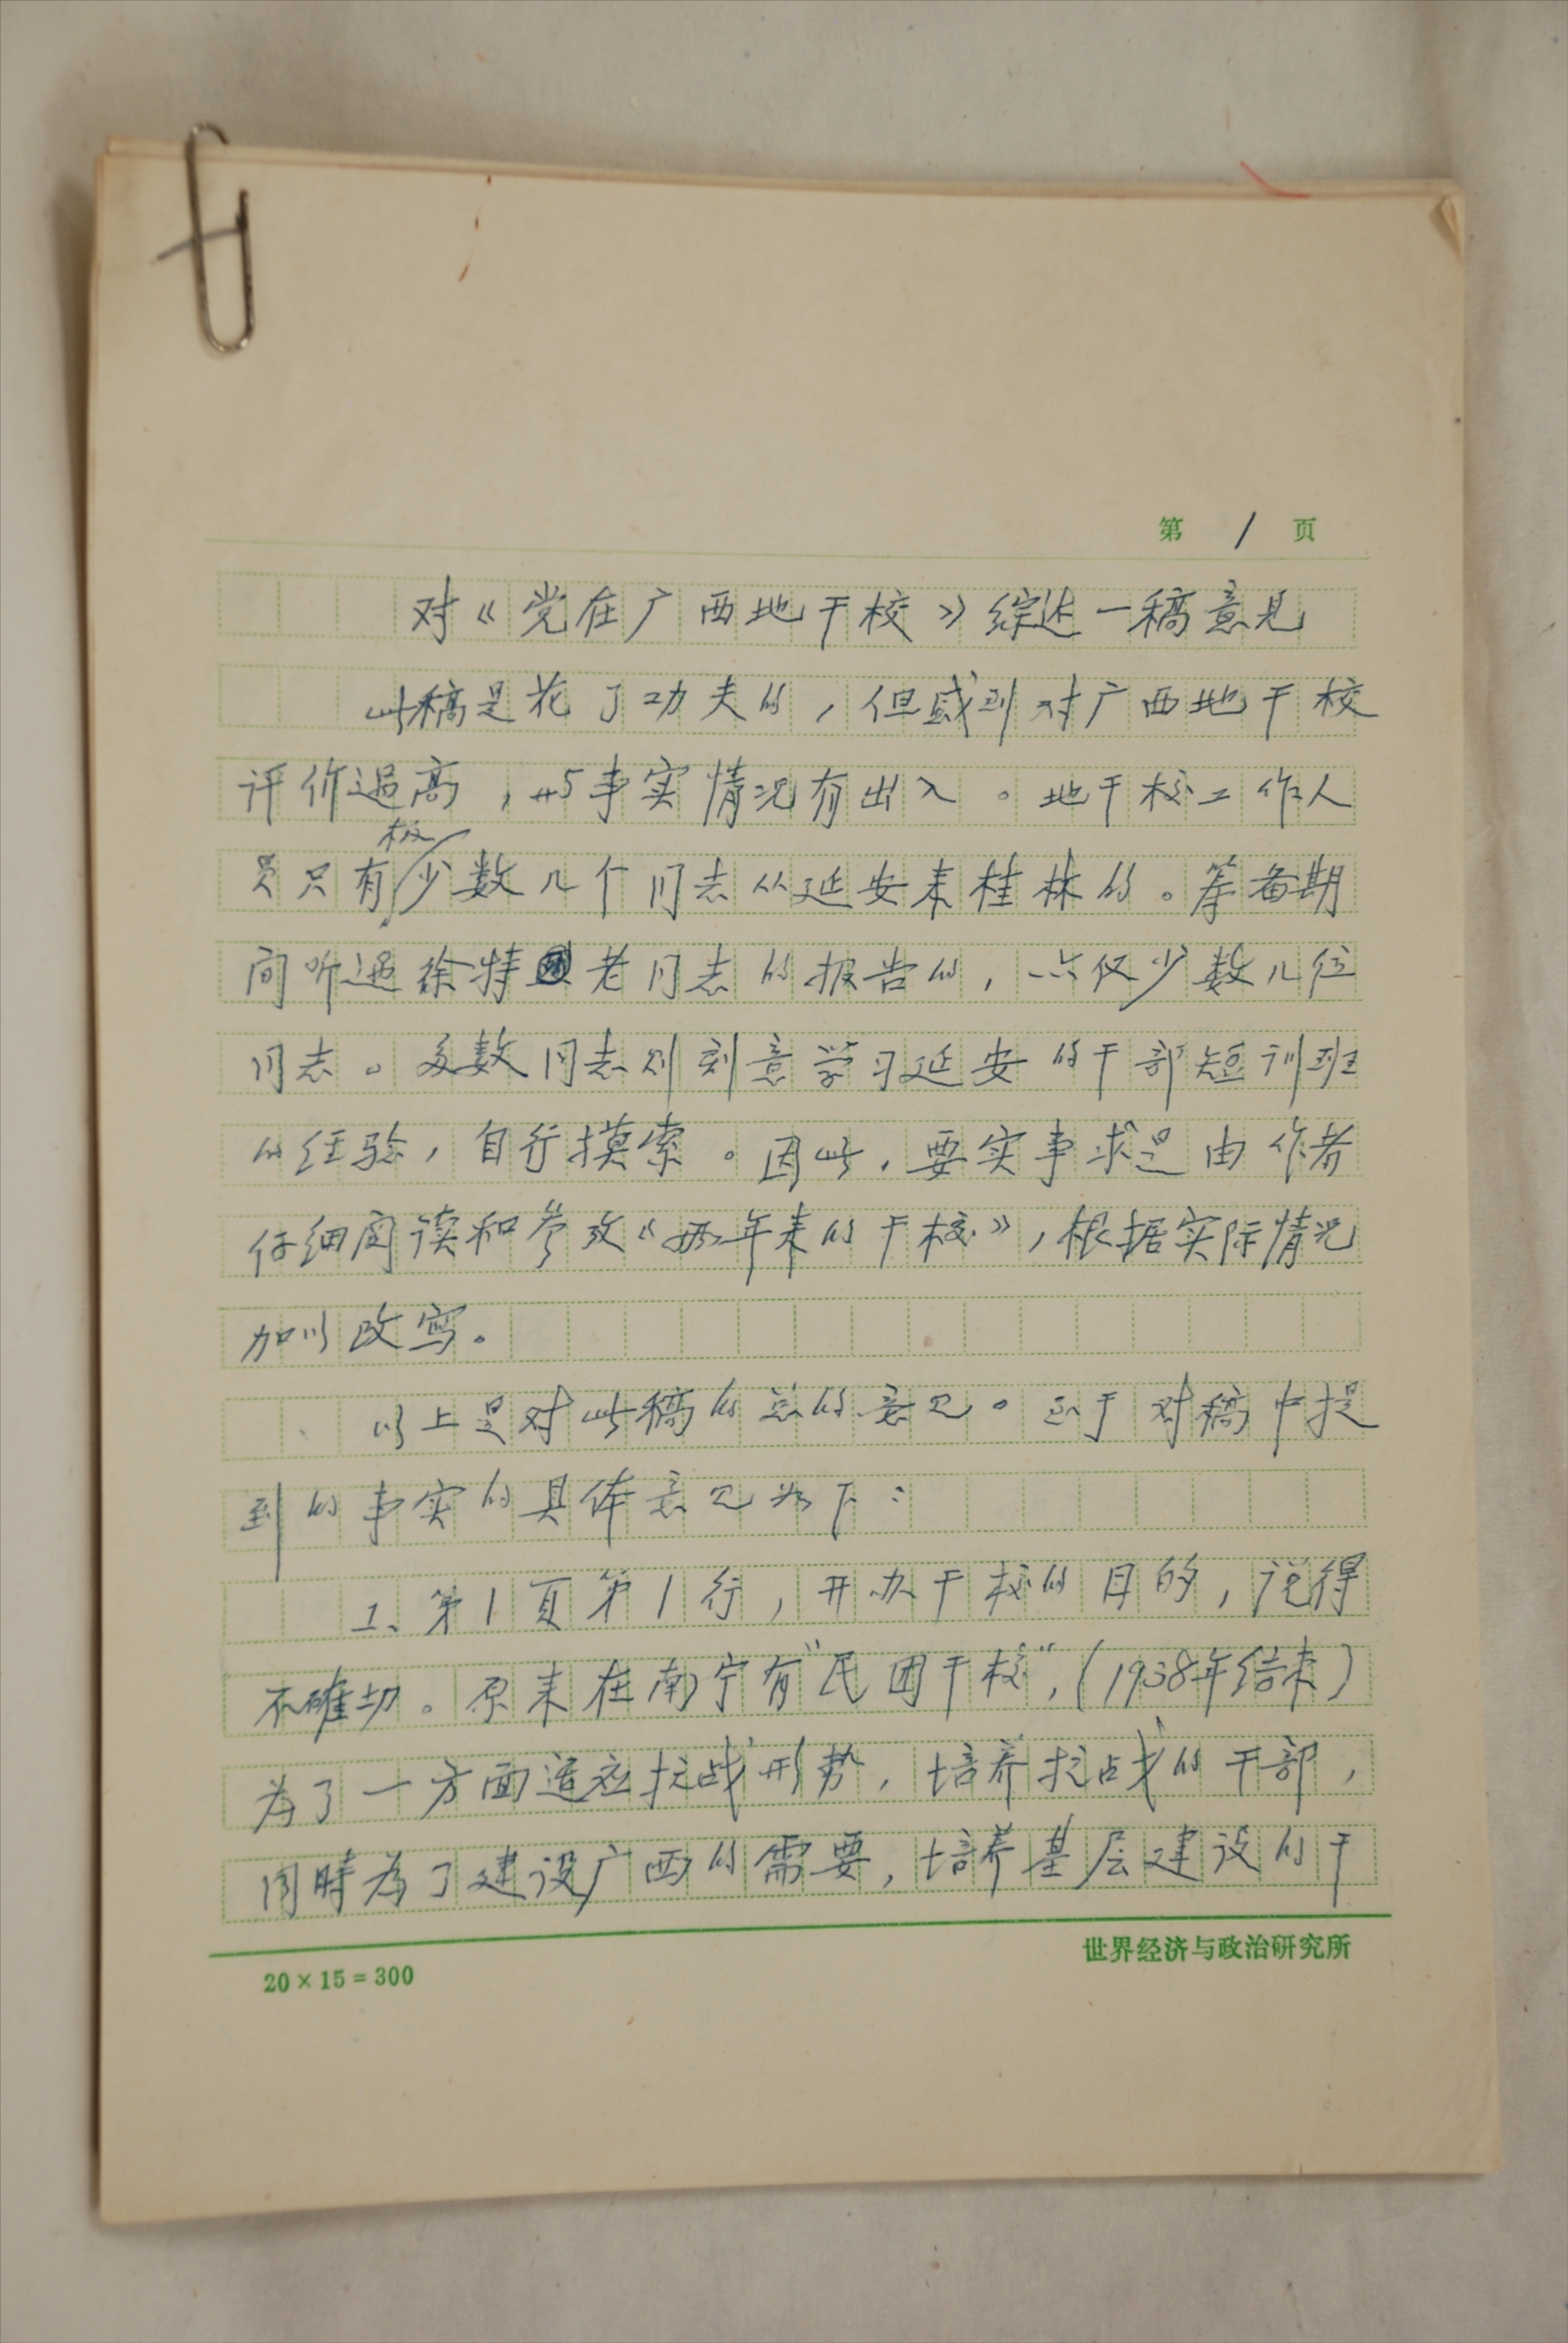 第 1 页
对《党在广西地干校》综述一稿意见
此稿是花了功夫的，但感到对广西地干校
评价过高，与事实情况有出入。地干校工作人
员只有极少数几个同志从延安来桂林的。筹备期
间听过徐特老同志的报告的，亦仅少数几位
同志。多数同志则刻意学习延安的干部短训班
的经验，自行摸索。因此，要实事求是由作者
仔细阅读和参考《两年来的干校》，根据实际情况
加以改写。
以上是对此稿的总的意见。至于对稿中提
到的事实的具体意见为下：
1、第1页第1行，开办干校的目的，说得
不确切。原来在南宁有“民团干校”，(1938年结束)
为了一方面适应抗战形势，培养抗战的干部，
同時為了建设广西的需要，培养基层建设的干
20×15=300
世界经济与政治研究所